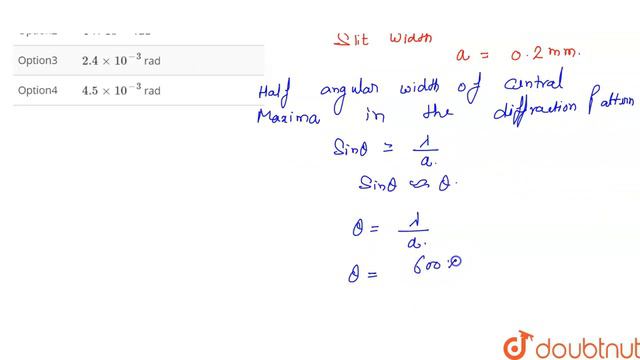 Option3 2.4 × 10⁻³ rad
Option4 4.5 × 10⁻³ rad
Slit width
a = 0.2 mm.
Half angular width of central
Maxima in the diffraction Pattern
Sinθ = λ/a.
Sinθ ∽ θ.
θ = λ/a.
θ = 600
doubtnut